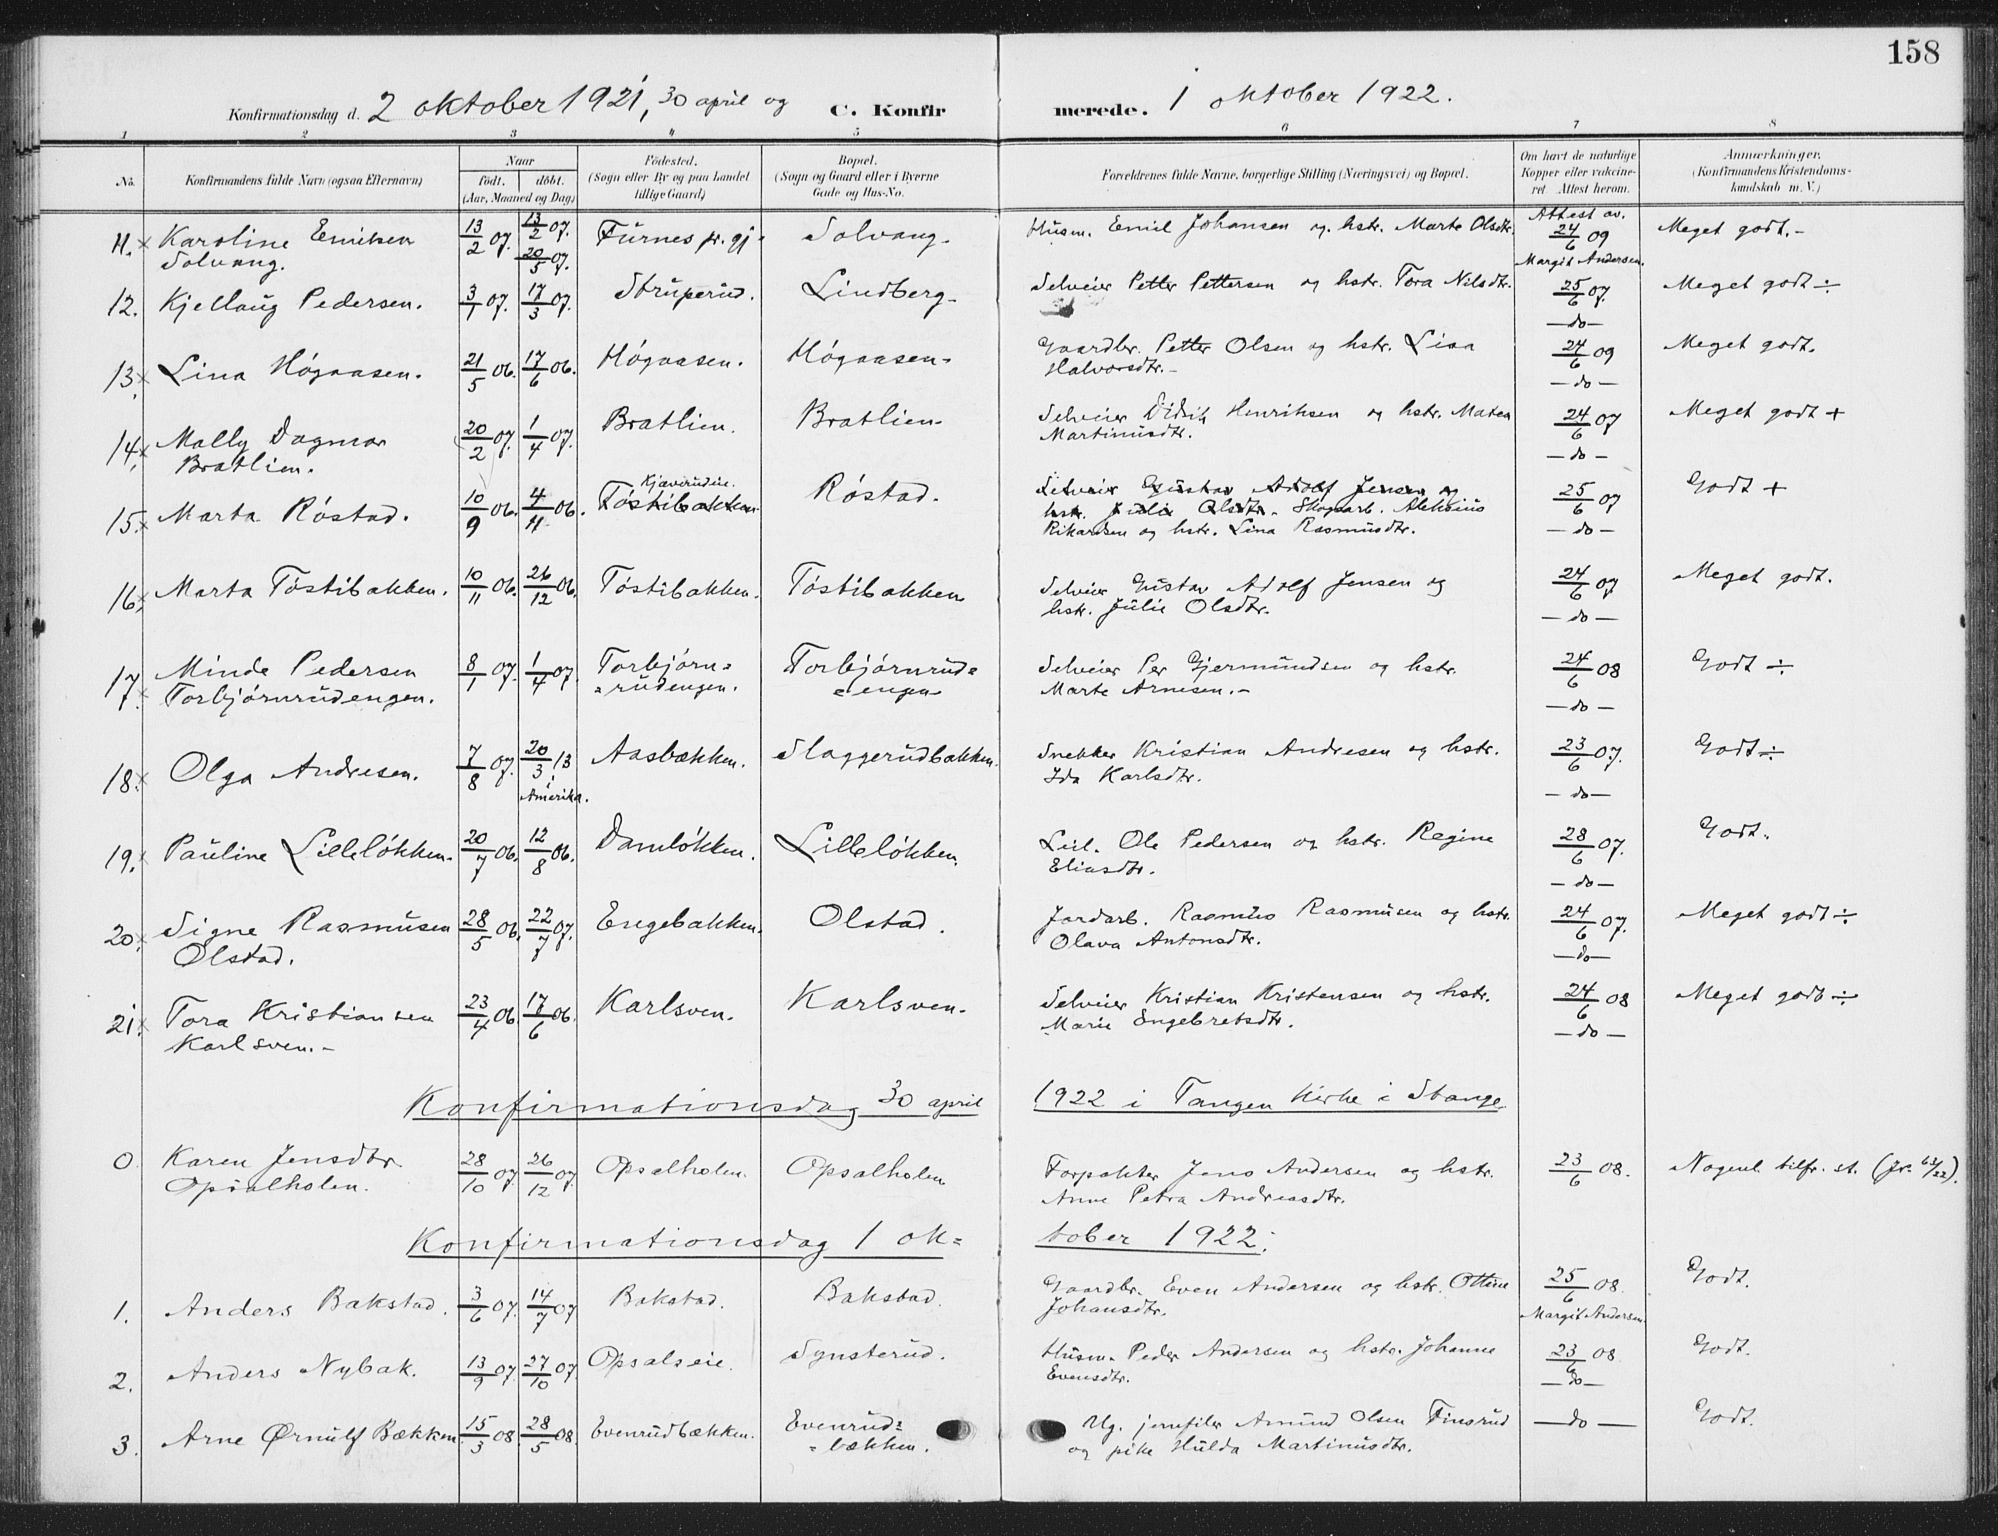 158
Konfirmationsdag d. 2 oktober 1921, 30 april og C. Konfirmerede. 1 oktober 1922.
1 2 3 4 5 6 7 8
No. Konfirmandens fulde Navn (ogsaa Efternavn) Naar födt. döbt. (Aar, Maaned og Dag) Födested. (Sogn eller By og paa Landet tillige Gaard) Bopæl. (Sogn og Gaard eller i Byerne Gade og Hus-No. Forældrenes fulde Navne, borgerlige Stilling (Næringsvei) og Bopæl. Om havt de naturlige Kopper eller vaccineret Attest herom. Anmærkninger. (Konfirmandens Kristendomskundskab m. V.)
11. x Karoline Emilsen 13/2 07. 13/2 07. Furnes pr. gj. Solvang. Husm. Emil Johansen og hstr. Marte Olsdtr. Attest av. 24/6 09 Meget godt.-
Solvang. 20/5 07. Margit Andersen.
12. Kjellaug Pedersen. 3/1 07. 17/3 07. Struperud. Lindberg. Selveier Petter Pettersen og hstr. Tora Nilsdtr. 25/6 07. Meget godt ÷
—do—
13. x Lina Högaasen. 21/5 06. 17/6 06. Högaasen. Högaasen. Gaardbr. Petter Olsen og hstr. Lisa 24/6 09 Meget godt.
Halvorsdtr.- —do—
14. x Mally Dagmar 20/2 07. 1/4 07. Bratlien. Bratlien. Selveier Didrik Henriksen og hstr. Matea 24/6 07 Meget godt +
Bratlien. Martinusdtr. —do—
Kjæverudeie.
15. x Marta Röstad. 10/9 06. 4/11 06. Töstibakken Röstad. Selveier Gustav Adolf Jensen og 25/6 07 Godt +
hstr. Julie Olsdtr. Skogarb. Aleksius
Rikardsen og hstr. Lina Rasmusdtr. —do—
16. x Marta Töstibakken. 10/11 06. 26/12 06. Töstibakken. Töstibakken Selveier Gustav Adolf Jensen og 24/6 07 Meget godt.
hstr. Julie Olsdtr. —do—
17. x Minde Pedersen 8/1 07. 1/4 07. Torbjörn= Torbjörnrud= Selveier Per Gjermundsen og hstr. 24/6 08 Godt ÷
Torbjörnrudengen. =rudengen. =engen Marte Arnesen.- —do—
18. x Olga Andresen. 7/8 07. 20/3 13 Aasbækken. Slaggerudbakken. Snekker Kristian Andresen og hstr. 23/6 07. Godt ÷
i Amerika. Ida Karlsdtr. —do—
19. x Pauline Lilleløkken. 20/7 06. 12/8 06. Damløkken. Lilleløkken. Leil. Ole Pedersen og hstr. Regine 28/6 07. Godt.
Eliasdtr. —do—
20. x Signe Rasmusen 28/5 06. 22/7 07. Engebakken. Olstad. Jordarb. Rasmus Rasmusen og hstr. 24/6 07. Meget godt ÷
Olstad. Olava Antonsdtr. —do—
21. x Tora Kristiansen 23/4 06 17/6 06. Karlsven. Karlsven. Selveier Kristian Kristensen og hstr. 24/6 08 Meget godt ÷
Karlsven.- Marie Engebretsdtr. —do—
Konfirmationsdag 30 april 1922 i Tangen kirke i Stange
0 Karen Jensdtr. 28/10 07. 26/12 07 Opsalholen. Opsalholen Forpakter Jens Andersen og hstr. 23/6 08. Nogenl. tilfr. st. (Jr. 62/22).
Opsalholen. Anne Petra Andreasdtr.
Konfirmationsdag 1 ok= tober 1922.
1. Anders Bakstad. 3/6 07. 14/7 07 Bakstad. Bakstad. Gaardbr. Even Andersen og hstr. Ottine 25/6 08. Godt.
Johansdtr. Margit Andersen.
2. Anders Nybak. 13/9 07. 27/10 07 Opsalseie. Synsterud. Husm. Peder Andersen og hstr. Johanne 23/6 08 Godt.
Evensdtr. —do—
3. Arne Ørnulf Bækken 15/3 08. 28/5 08. Evenrudbækken. Evenrud= Ug. jernfiler Amund Olsen Finsrud —do— Godt.
=bækken. og pike Hulda Martinusdtr.